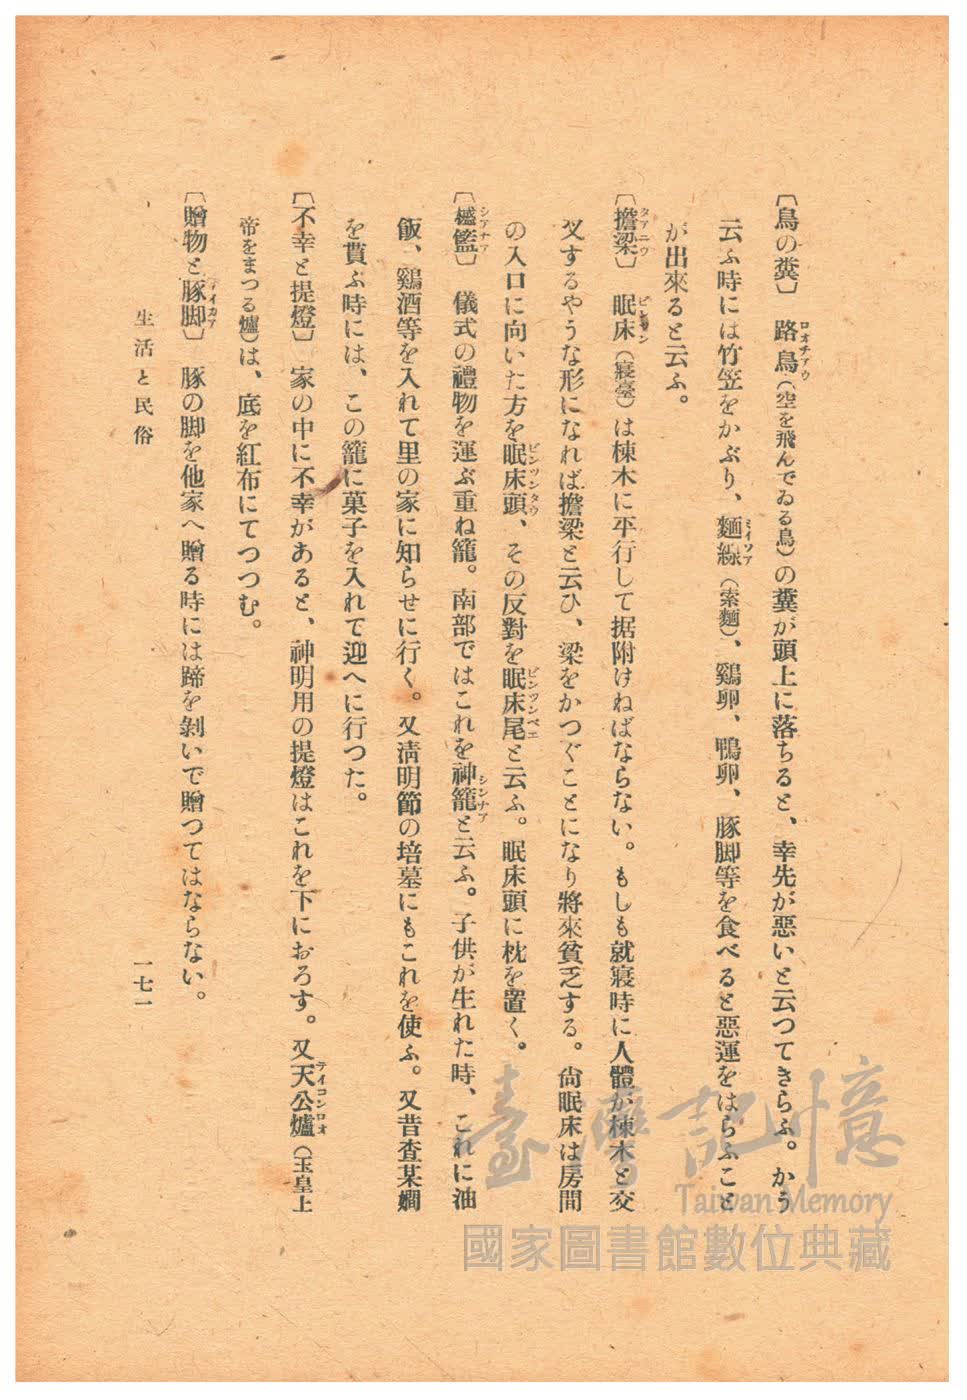 〔鳥の糞〕 路鳥(空を飛んでゐる鳥)の糞が頭上に落ちると、幸先が惡いと云つてきらふ。かう
云ふ時には竹笠をかぶり、麵線(索麵)、鷄卵、鴨卵、豚脚等を食べると惡運をはらふこと
が出來ると云ふ。
〔擔梁〕 眠床(寢臺)は棟木に平行して据附けねばならない。もしも就寢時に人體が棟木と交
叉するやうな形になれば擔梁と云ひ、梁をかつぐことになり將來貧乏する。尙眠床は房間
の入口に向いた方を眠床頭、その反對を眠床尾と云ふ。眠床頭に枕を置く。
〔槛籃〕 儀式の禮物を運ぶ重ね籠。南部ではこれを神籠と云ふ。子供が生れた時、これに油
飯、鷄酒等を入れて里の家に知らせに行く。又淸明節の培墓にもこれを使ふ。又昔査某嫺
を貰ふ時には、この籠に菓子を入れて迎へに行つた。
〔不幸と提燈〕 家の中に不幸があると、神明用の提燈はこれを下におろす。又天公爐(玉皇上
帝をまつる爐)は、底を紅布にてつつむ。
〔贈物と豚脚〕 豚の脚を他家へ贈る時には蹄を剝いで贈つてはならない。
生活と民俗
一七一
臺灣記憶
Taiwan Memory
國家圖書館數位典藏